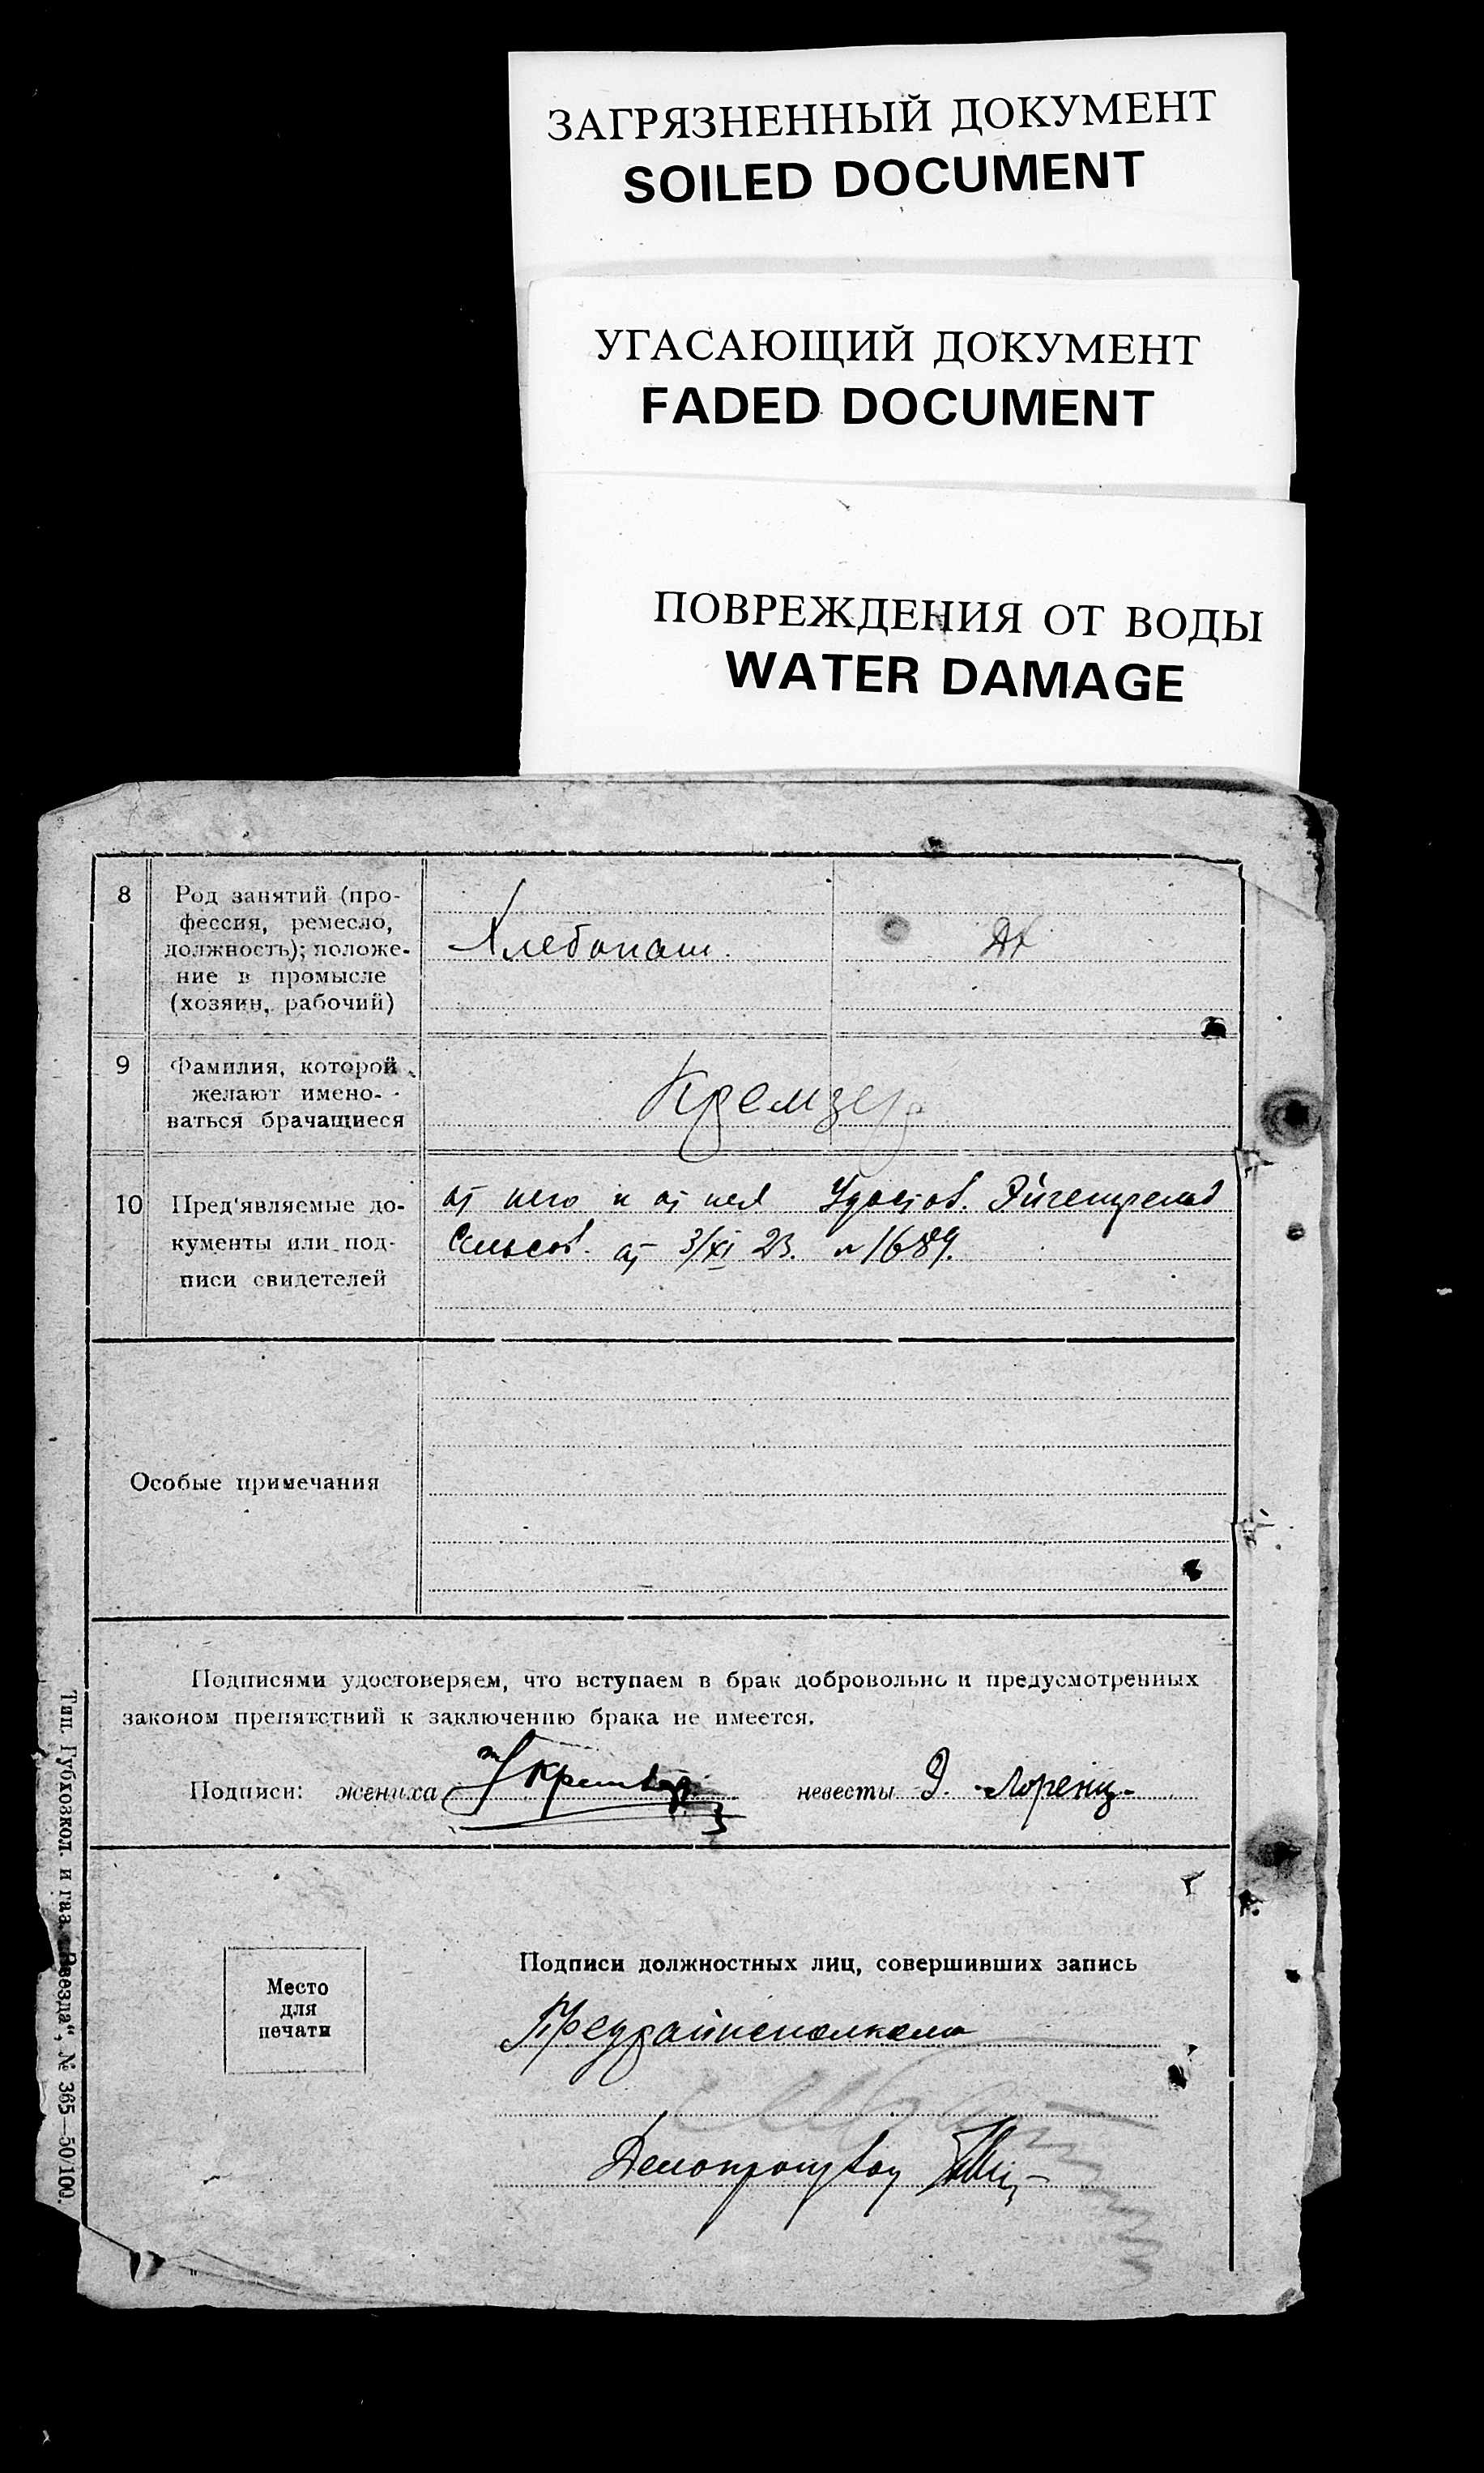 ЗАГРЯЗНЕННЫЙ ДОКУМЕНТ
SOILED DOCUMENT
УГАСАЮЩИЙ ДОКУМЕНТ
FADED DOCUMENT
ПОВРЕЖДЕНИЯ ОТ ВОДЫ
WATER DAMAGE
8
Род занятий (про-
фессия, ремесло,
должность); положе-
ние в промысле
(хозяин, рабочий)
Хлебопаш.
9
Фамилия, которой
желают имено-
ваться брачащиеся
Кремзер
10
Пред'являемые до-
кументы или под-
писи свидетелей
от него и от нея Удостов.
Сельсов. от 3/XI 23. № 1689.
Особые примечания
Подписями удостоверяем, что вступаем в брак добровольно и предусмотренных
законом препятствий к заключению брака не имеется.
Подписи: жениха невесты Э. Лоренц
Место
для
печати
Подписи должностных лиц, совершивших запись
Предрайисполкома
Делопроизвод
Тип. Губхозкол. и газ. „Звезда“, № 365—50/100.